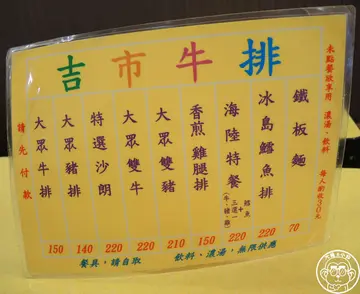 吉市牛排
未點餐欲享用 濃湯、飲料 每人酌收30元
鐵板麵 70
冰島鱈魚排 220
海陸特餐 鱈魚+三選一(牛、豬、雞) 220
香煎雞腿排 150
大眾雙豬 210
大眾雙牛 220
特選沙朗 220
大眾豬排 140
大眾牛排 150
請先付款
餐具，請自取
飲料、濃湯，無限供應